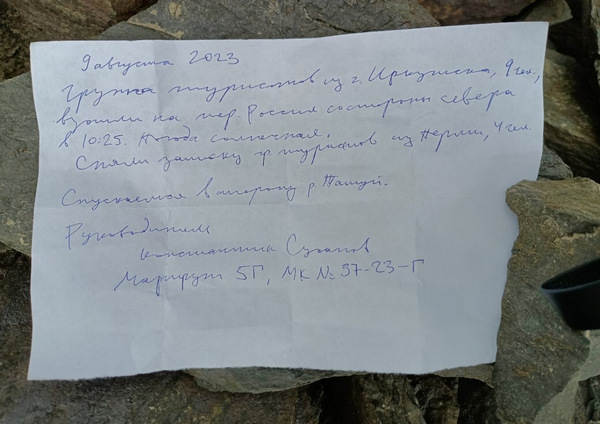 9 августа 2023
Группа туристов из г. Иркутска, 9 чел.,
взошли на пер. Россия со стороны севера
в 10:25. Погода солнечная.
Сняли записку гр туристов из Перми, 4 чел.
Спускаемся в сторону р.
Руководитель
Константин Суханов
Маршрут 5Г, МК № 57-23-Г